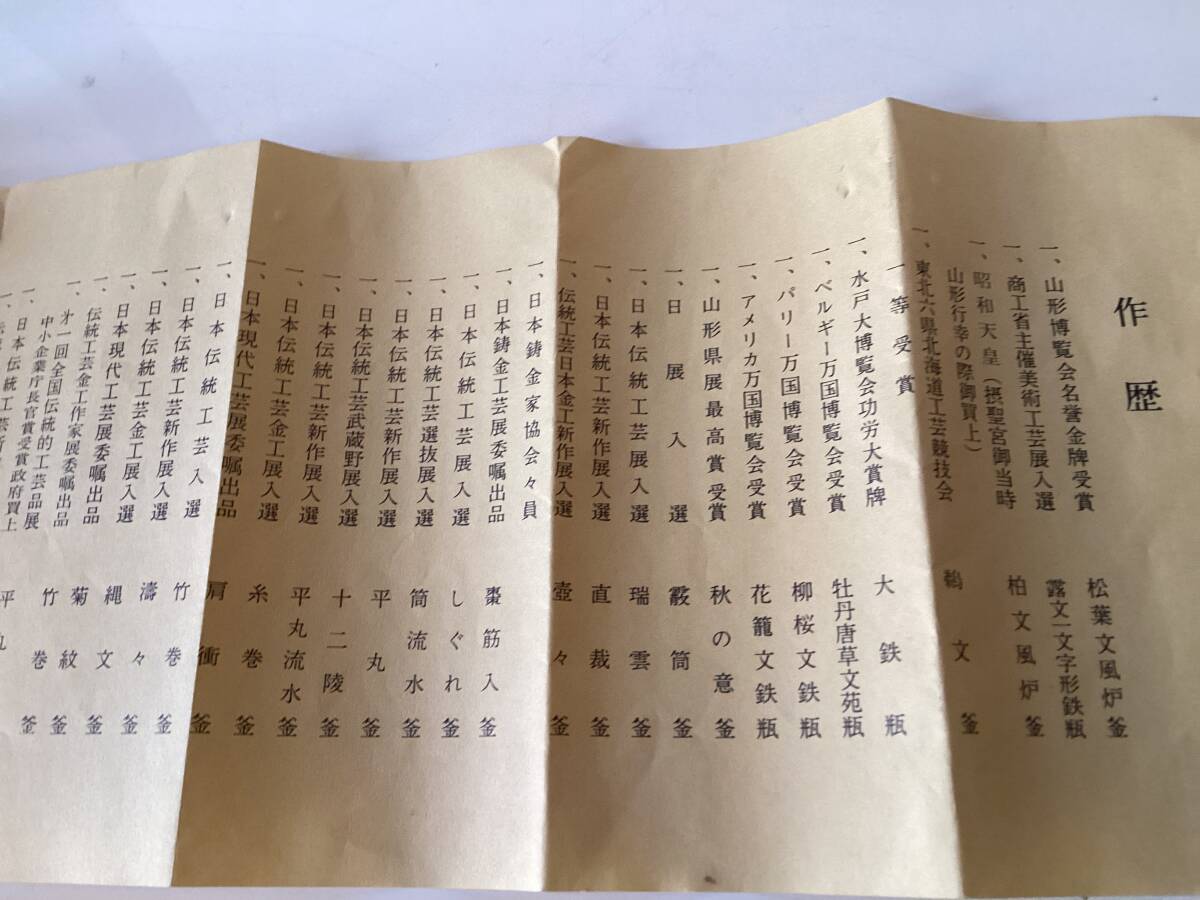 作歴
一、山形博覧会名誉金牌受賞 松葉文風炉釜
一、商工省主催美術工芸展入選 露文一文字形鉄瓶
一、昭和天皇(摂聖宮御当時 柏文風炉釜
山形行幸の際御買上)
一、東北六県北海道工芸競技会 文釜
一等受賞
一、水戸大博覧会功労大賞牌 大鉄瓶
一、ベルギー万国博覧会受賞 牡丹唐草文苑瓶
一、パリー万国博覧会受賞 柳桜文鉄瓶
一、アメリカ万国博覧会受賞 花籠文鉄瓶
一、山形県展最高賞受賞 秋の意釜
一、日展入選 霰筒釜
一、日本伝統工芸展入選 瑞雲釜
一、日本伝統工芸新作展入選 直裁釜
一、伝統工芸日本金工新作展入選 壺々釜
一、日本鋳金家協会々員
一、日本鋳金工芸展委嘱出品 棗筋入釜
一、日本伝統工芸展入選 しぐれ釜
一、日本伝統工芸選抜展入選 筒流水釜
一、日本伝統工芸新作展入選 平丸釜
一、日本伝統工芸武蔵野展入選 十二陵釜
一、日本伝統工芸新作展入選 平丸流水釜
一、日本伝統工芸金工展入選 糸巻釜
一、日本現代工芸展委嘱出品 肩衝釜
一、日本伝統工芸入選 竹巻釜
一、日本伝統工芸新作展入選 濤々釜
一、日本伝統工芸金工展入選 縄文釜
一、日本現代工芸展委嘱出品 菊紋釜
一、伝統工芸金工作家展委嘱出品 竹巻釜
一、才一回全国伝統的工芸品展 平丸
中小企業庁長官賞受賞政府買上
一、日本伝統工芸新